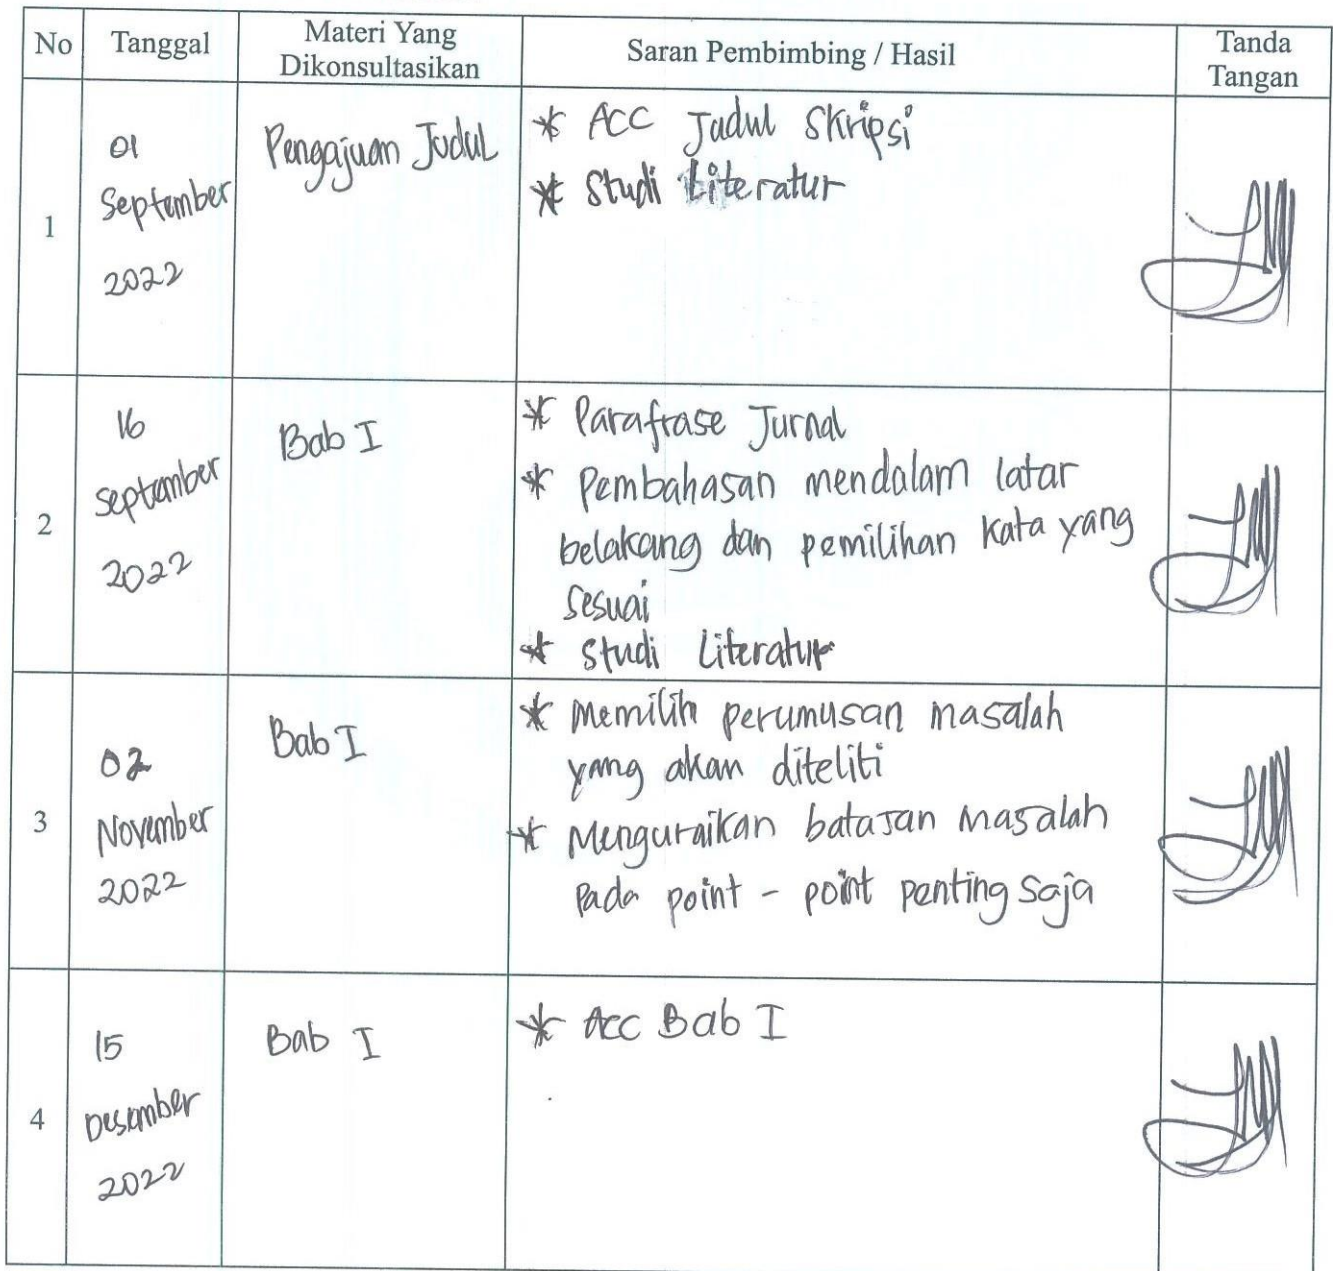 No Tanggal Materi Yang Dikonsultasikan Saran Pembimbing / Hasil Tanda Tangan
1
01
September
2022
Pengajuan Judul
* ACC Judul Skripsi
* Studi Literatur
2
16
September
2022
Bab I
* Parafrase Jurnal
* Pembahasan mendalam latar
belakang dan pemilihan kata yang
sesuai
* Studi Literatur
3
02
November
2022
Bab I
* Memilih perumusan masalah
yang akan diteliti
* Menguraikan batasan masalah
pada point - point penting saja
4
15
Desember
2022
Bab I
* Acc Bab I